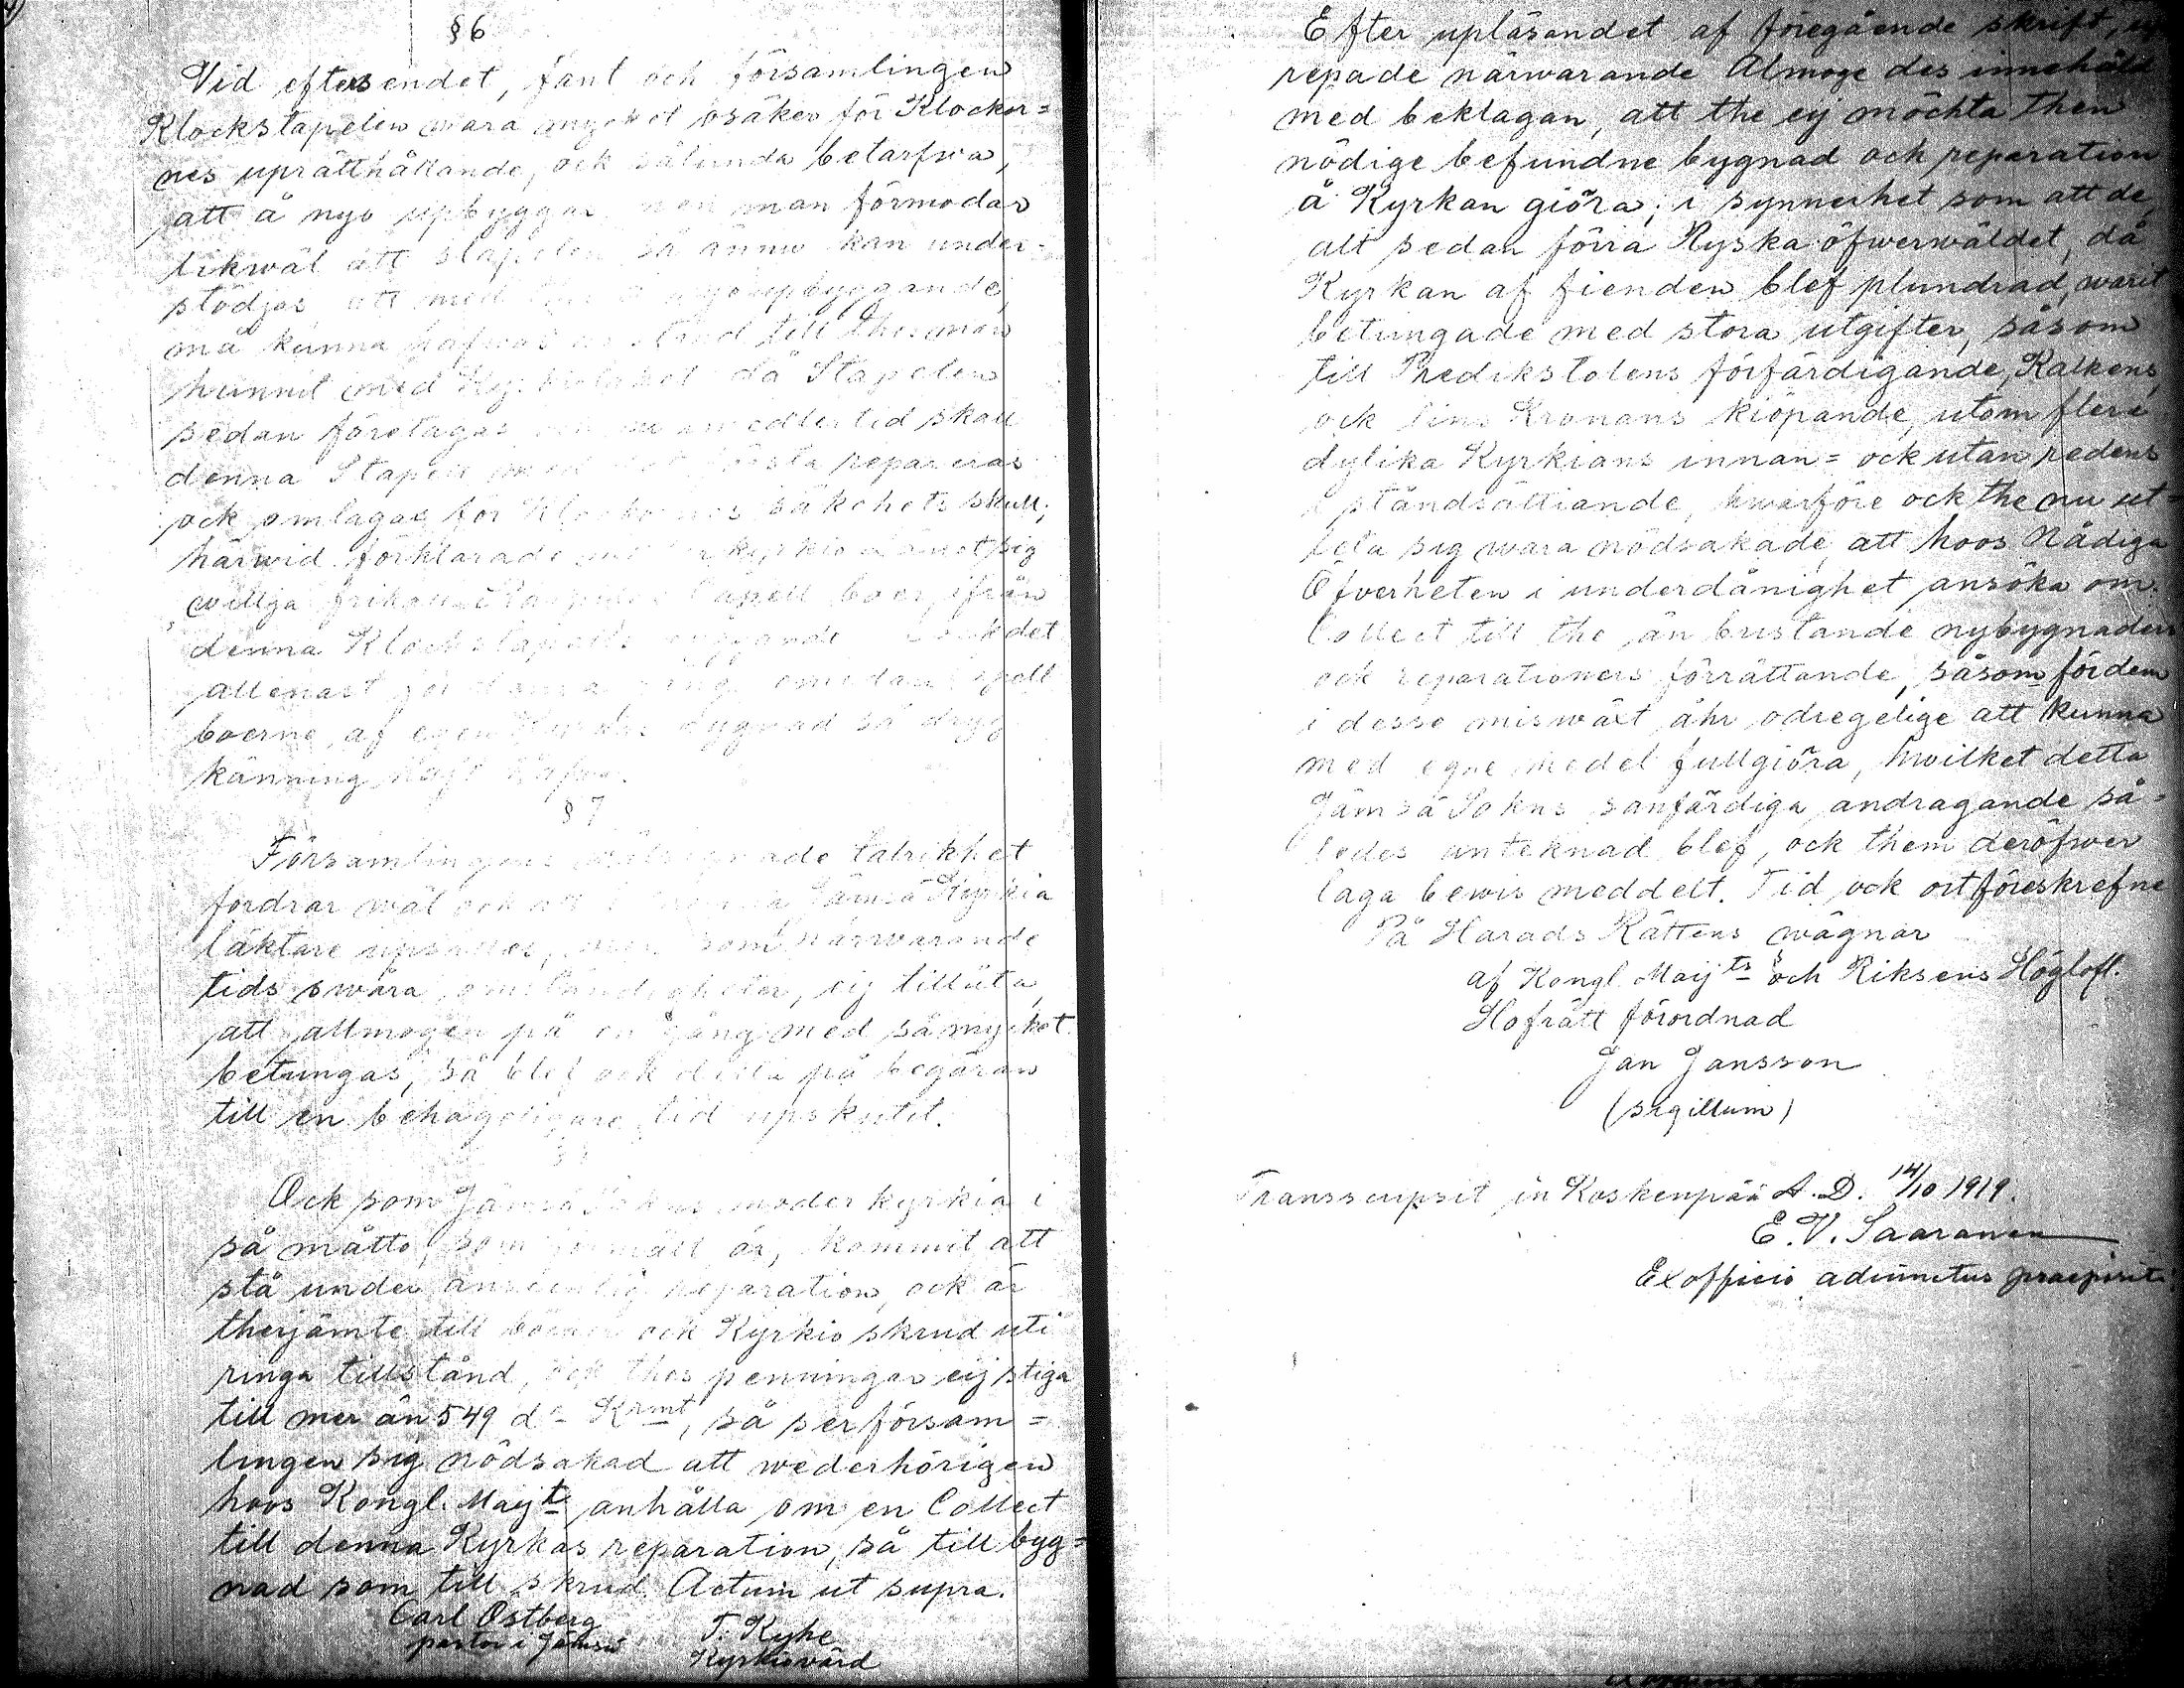 § 6
Vid eftersendet, fant och församlingen
Klockstapelen wara mycket osäker för Klockor=
nes uprätthållande, ock sålunda betarfwa,
att å nyo upbyggas men man förmodar
likwäl att stapelen så ännu kan under-
stödjas, att med upbyggande,
må kunna hafwas till thes man
hunnit med då Stapelen
sedan företagas medlertid skall
denna Stapel med första repareras
ock omlagas för Klockornes säkehets skull;
härwid förklarade kyrkio sig
willja Capell boer ifrån
denna Klockstapels byggande det
allenast för denna gång, emedan Capell
boerne, af egen Kyrkas bygnad så dryg
känning haft hafwa.
§ 7
Församlingens talrikhet
fordrar wäl ock att Jämsä Kyrkia
läktare upsättes, men som närwarande
tids swåra omständigheter, eij tillåta,
att allmogen på en gång med så mycket
betungas, så blef ock detta på begäran
till en behageligare tid upskutit.
Ock som Jämsä Sokns moder kyrkia i
så måtto, som förmält är, kommit att
stå under ansenlig reparation, ock är
therjämte till böcker ock Kyrkio skrud uti
ringa tillstånd, ock thes penningar eij stiga
till mer än 549 dr Krmt, så ser försam=
lingen sig nödsakad att wederhörigen
hoos Kongl. Maijt anhålla om en Collect
till denna Kyrkas reparation, så till byg=
nad som till skrud. Actum ut supra.
Carl Östberg
pastor i Jämsä
T. Kyhe
Kyrkiovärd
Efter upläsandet af föregående skrift,
repade närwarande Almoge des innehåld
med beklagan, att the eij möchta then
nödige befundne bygnad och reparation
å Kyrkan giöra; i synnerhet som att de,
alt sedan förra Ryska öfwerwäldet, då
Kyrkan af fienden blef plundrad, warit
betungade med stora utgifter, såsom
till Predikstolens förfärdigande, Kalkens,
ock lius Kronans kiöpande, utom flere
dylika Kyrkians innan= ock utan redens
i ståndsättiande, hwarföre ock the nu ut
lota sig wara nödsakade, att hoos Nådiga
Öfverheten i underdånighet ansöka om
Collect till the än bristande nybygnaders
ock reparationers förrättande, såsom för dem
i desse miswäxt åhr odregelige att kunna
med egne medel fullgiöra, hwilket detta
Jämsä Sokns sanfärdiga andragande så=
ledes anteknad blef, ock them deröfwer
laga bewis meddelt. Tid ock ort föreskrefne
På Härads Rättens wägnar
af Kongl. Maijts och Riksens Höglofl.
Hofrätt förordnad
Jan Jansson
(sigillum)
Transscripsit in Koskenpää A. D. 14/10 1919.
E. V. Saaranen
Ex officio adiunctus praepositi